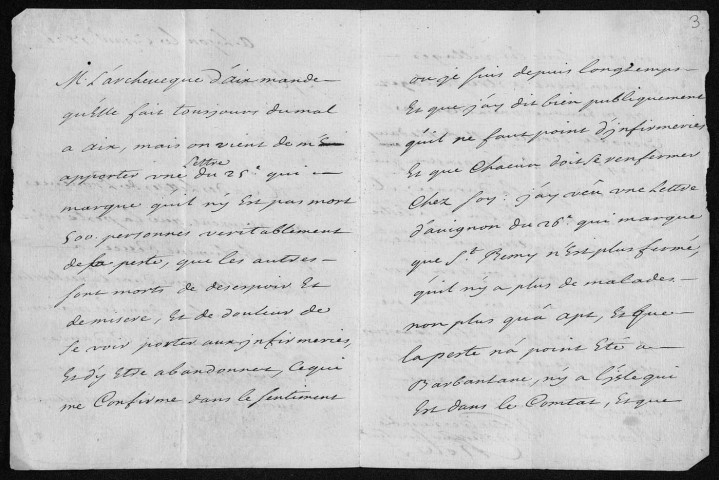 M. L'archeveque d'aix mande
qu'Elle fait tousjours du mal
a aix, mais on vient de m'
apporter vne Lettre du 25.e qui
marque quil n'y Est pas mort
500. personnes veritablement
de la peste, que les autres
sont morts de desespoir Et
de misere, Et de douleur de
se voir porter aux jnfirmeries,
Et d'y Estre abandonnez, Ce qui
me Confirme dans le sentiment
3
ou je suis depuis longtemps
Et que j'ay dit bien publiquement
qu'il ne faut point d'jnfirmeries
Et que Chacun doit se renfermer
Chez soy : j'ay veu vne Lettre
d'auignon du 26.e qui marque
que St. Remy n'Est plus fermé,
qu'il n'y a plus de malades
non plus qu'a apt, Et que
la peste n'a point Eté a
Barbantane, n'y a l'jsle qui
Est dans le Comtat, Et que